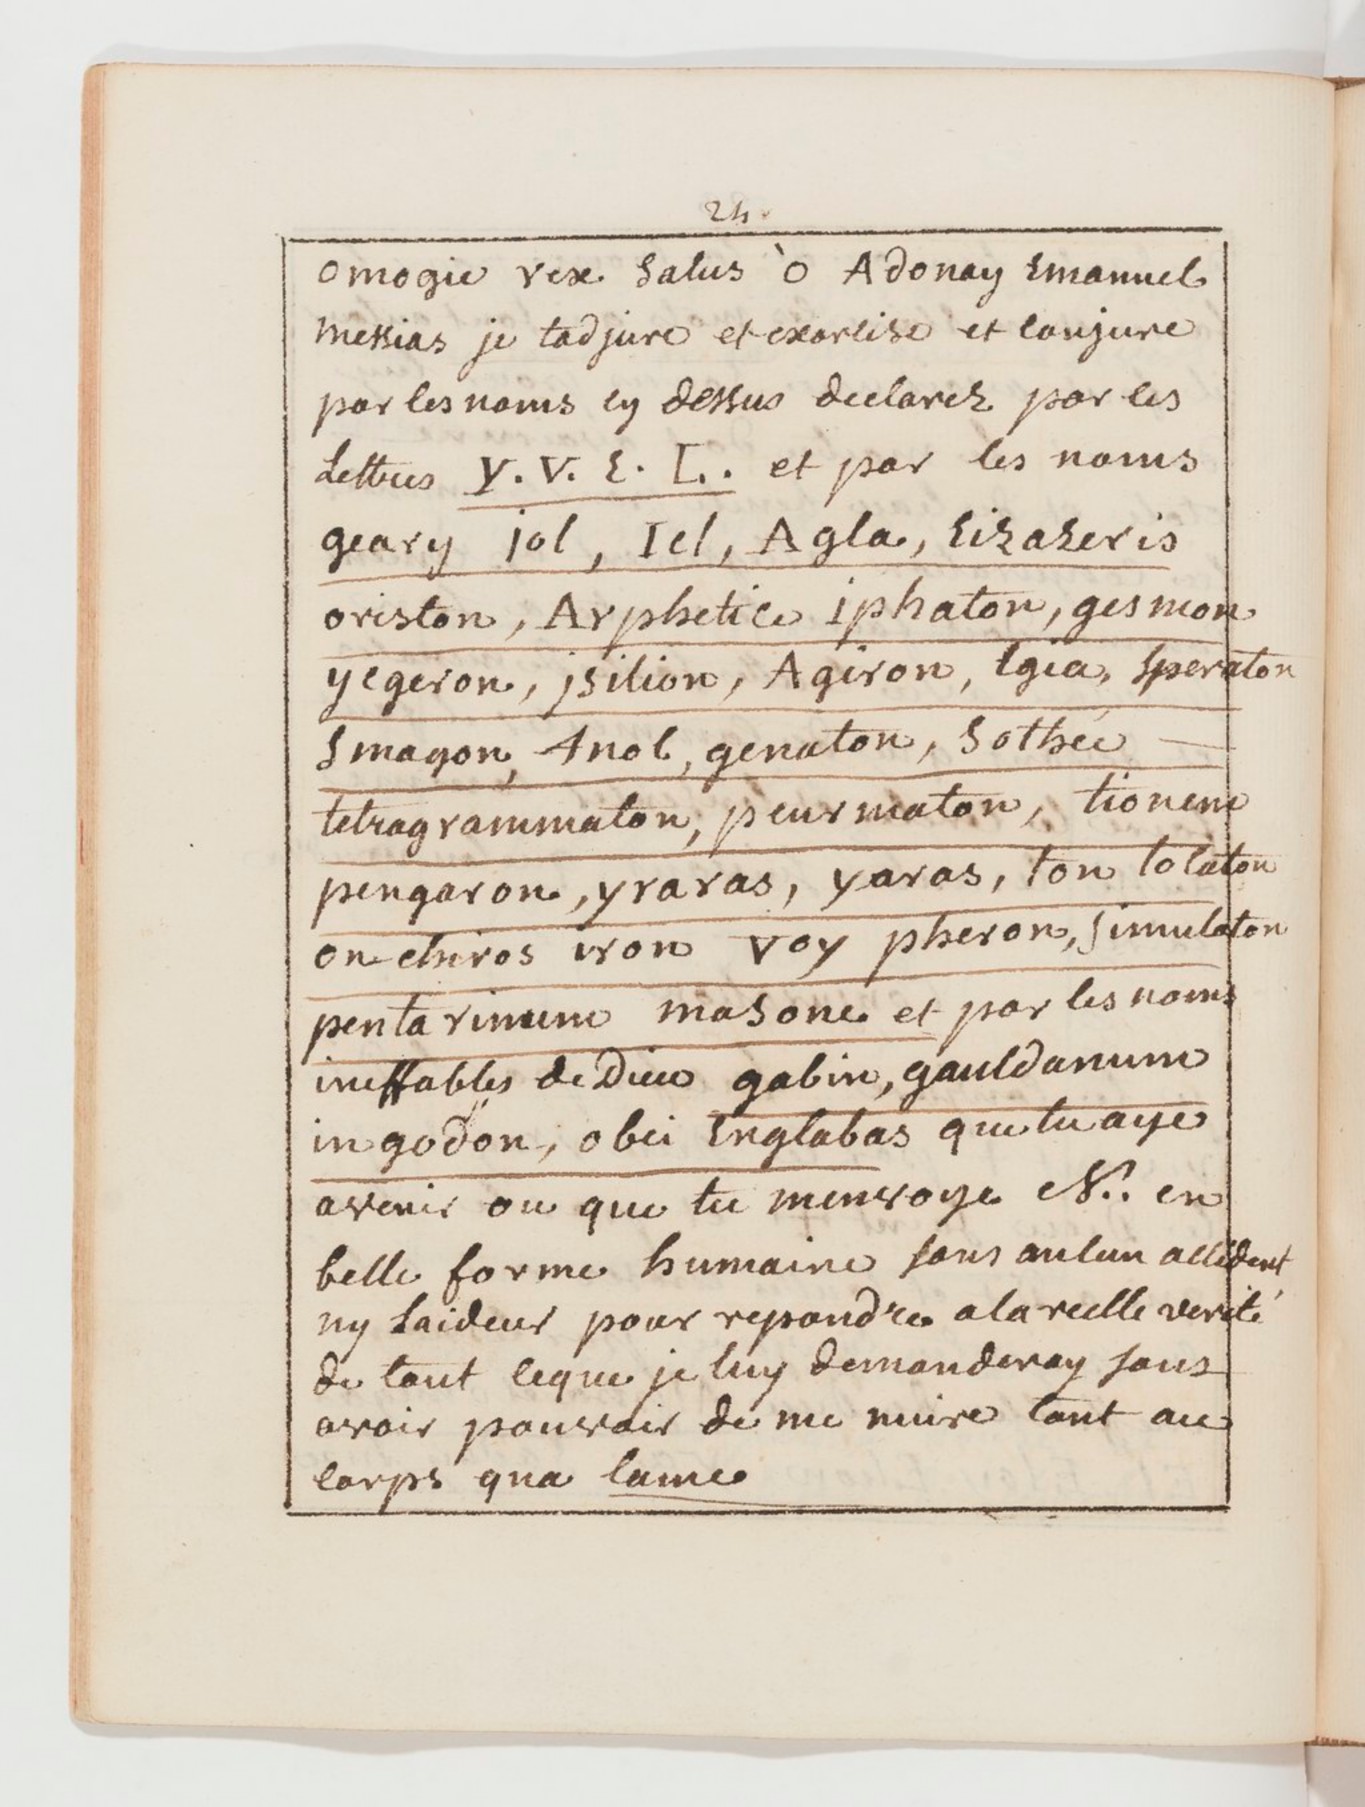 24.
omogie rex salus ò Adonay Emanuel
messias je tadjure et exorcise et conjure
par les noms cy dessus declarez par les
Lettres y. v. E. L. et par les noms
geary jol, Iel, Agla, Eizazeris
oriston, Arphetice iphaton, gesmon
yegeron, jsilion, Agiron, Egia, Speraton
Smagon, Anol, genaton, Sothée
tetragrammaton, peurmaton, tionem
pengaron, yraras, yaras, ton tolaton
on chiros iron voy pheron, Simulaton
pentarinum masone et par les noms
ineffables de Dieu gabin, gauldanum
ingodon, obei Englabas que tu aye
avenir ou que tu menvoye N. en
belle forme humaine sans aucun accident
ny Laideur pour repondre a la reelle verité
de tout ceque je luy demanderay sans
avoir pouvoir de me nuire tant au
corps qua lame